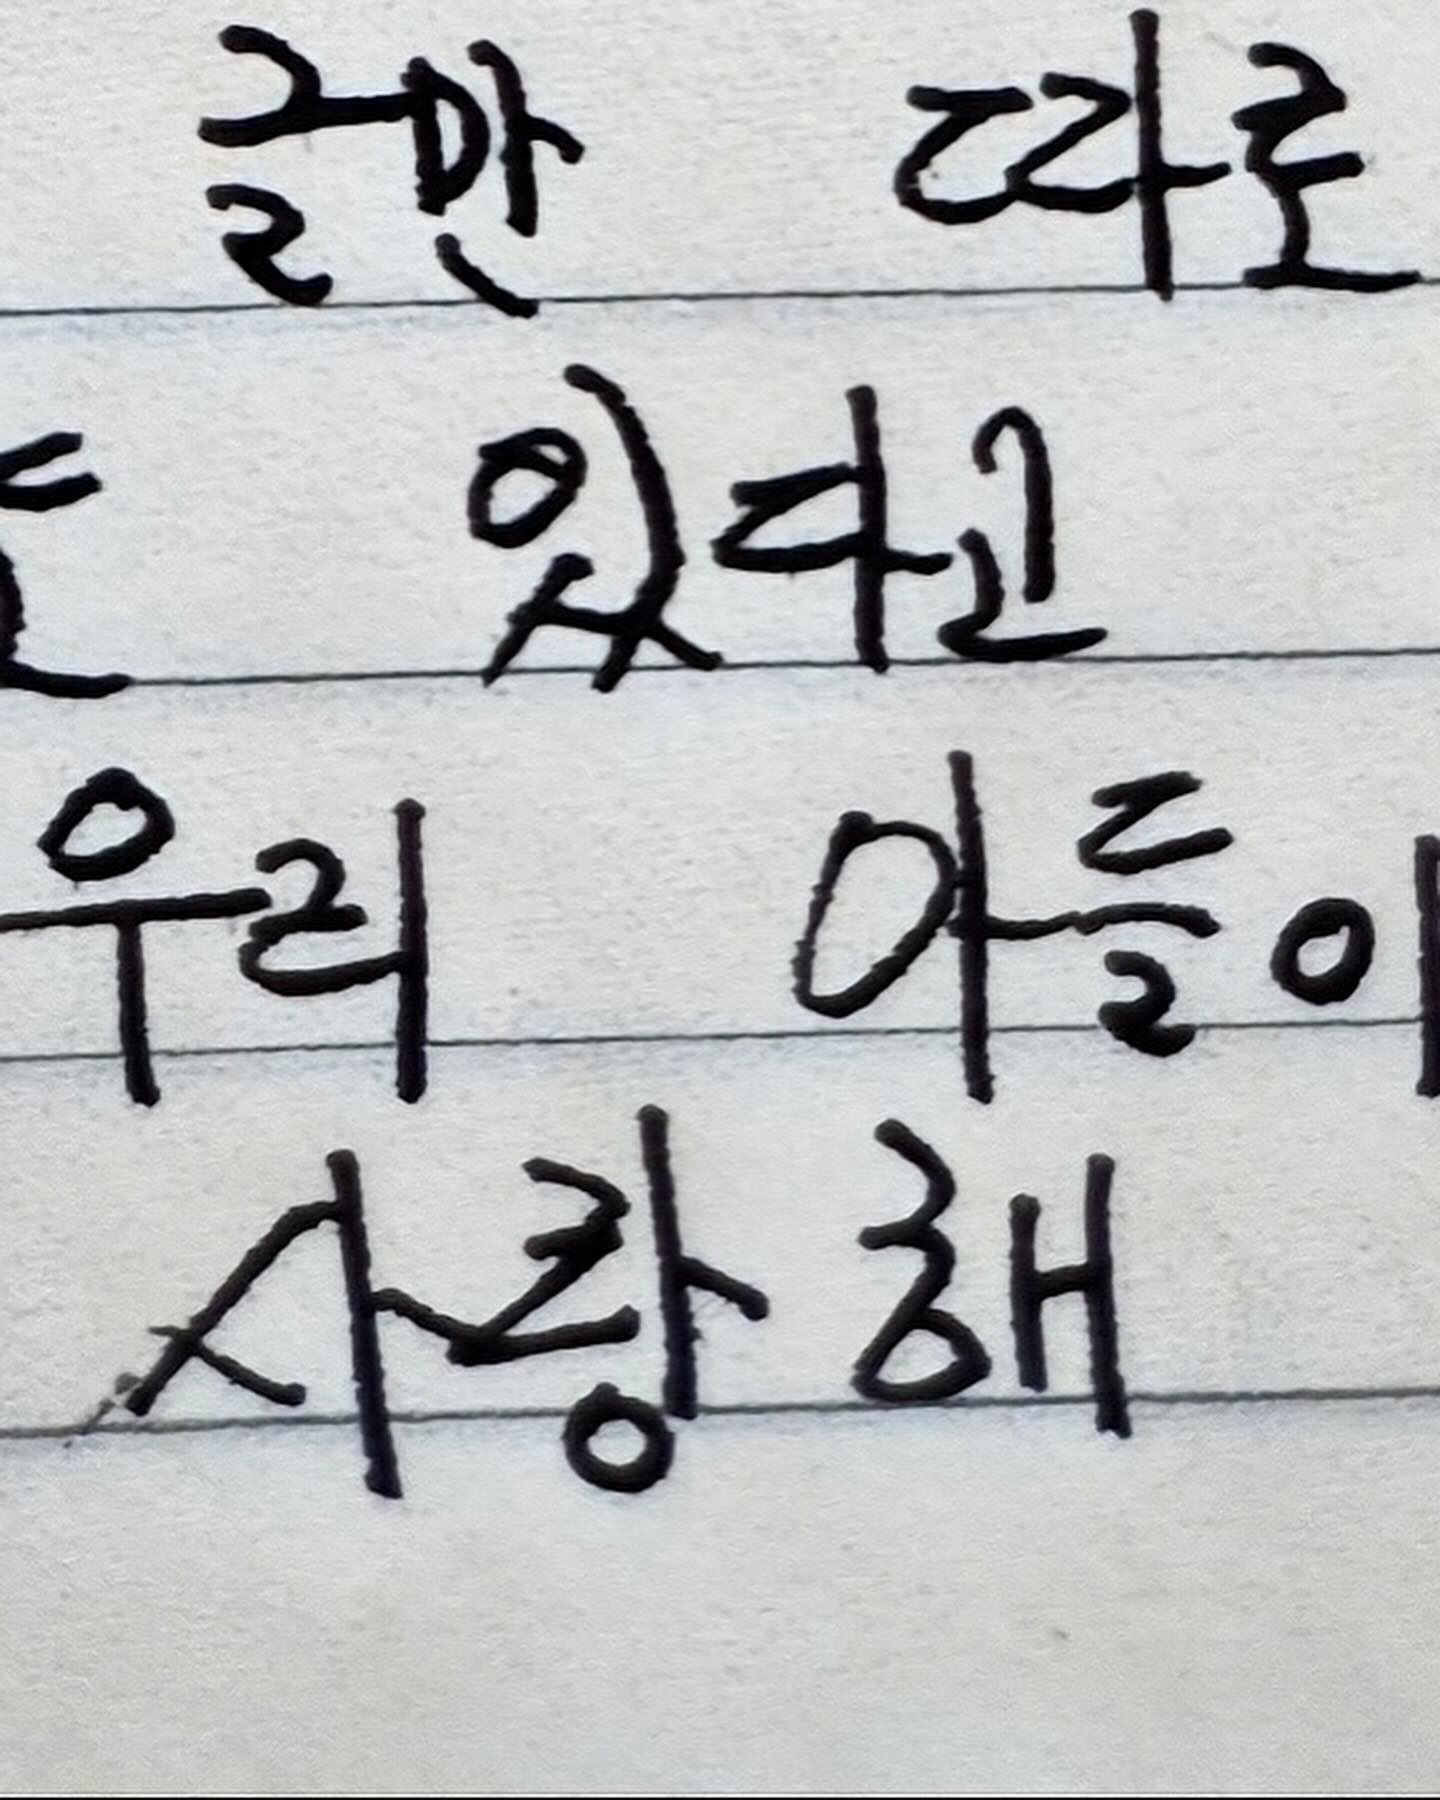 글만 따로
있다고
우리 아들이
사랑해